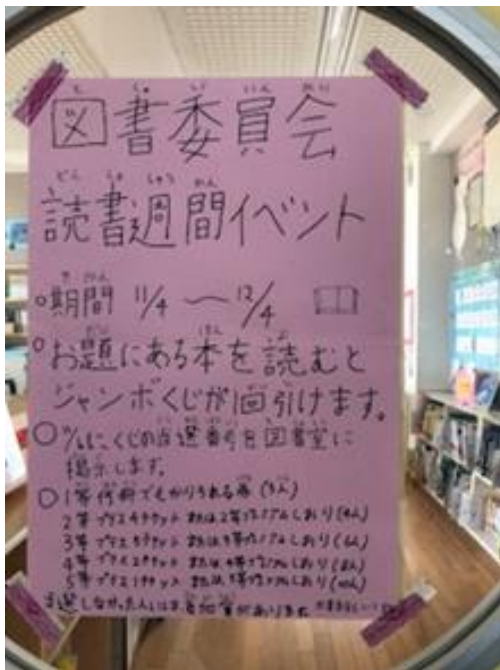 図書委員会
読書週間イベント
期間 11/4 〜 12/4
お題にある本を読むと
ジャンボくじが1回引けます。
くじの当選番号を図書室に
掲示します。
1等 何冊でもかりられる券
2等 プラス4チケット または2等 しおり
3等 プラス3チケット または3等 しおり
4等 プラス2チケット または4等 しおり
5等 プラス1チケット または5等 しおり
当選しなかった人には参加賞があります